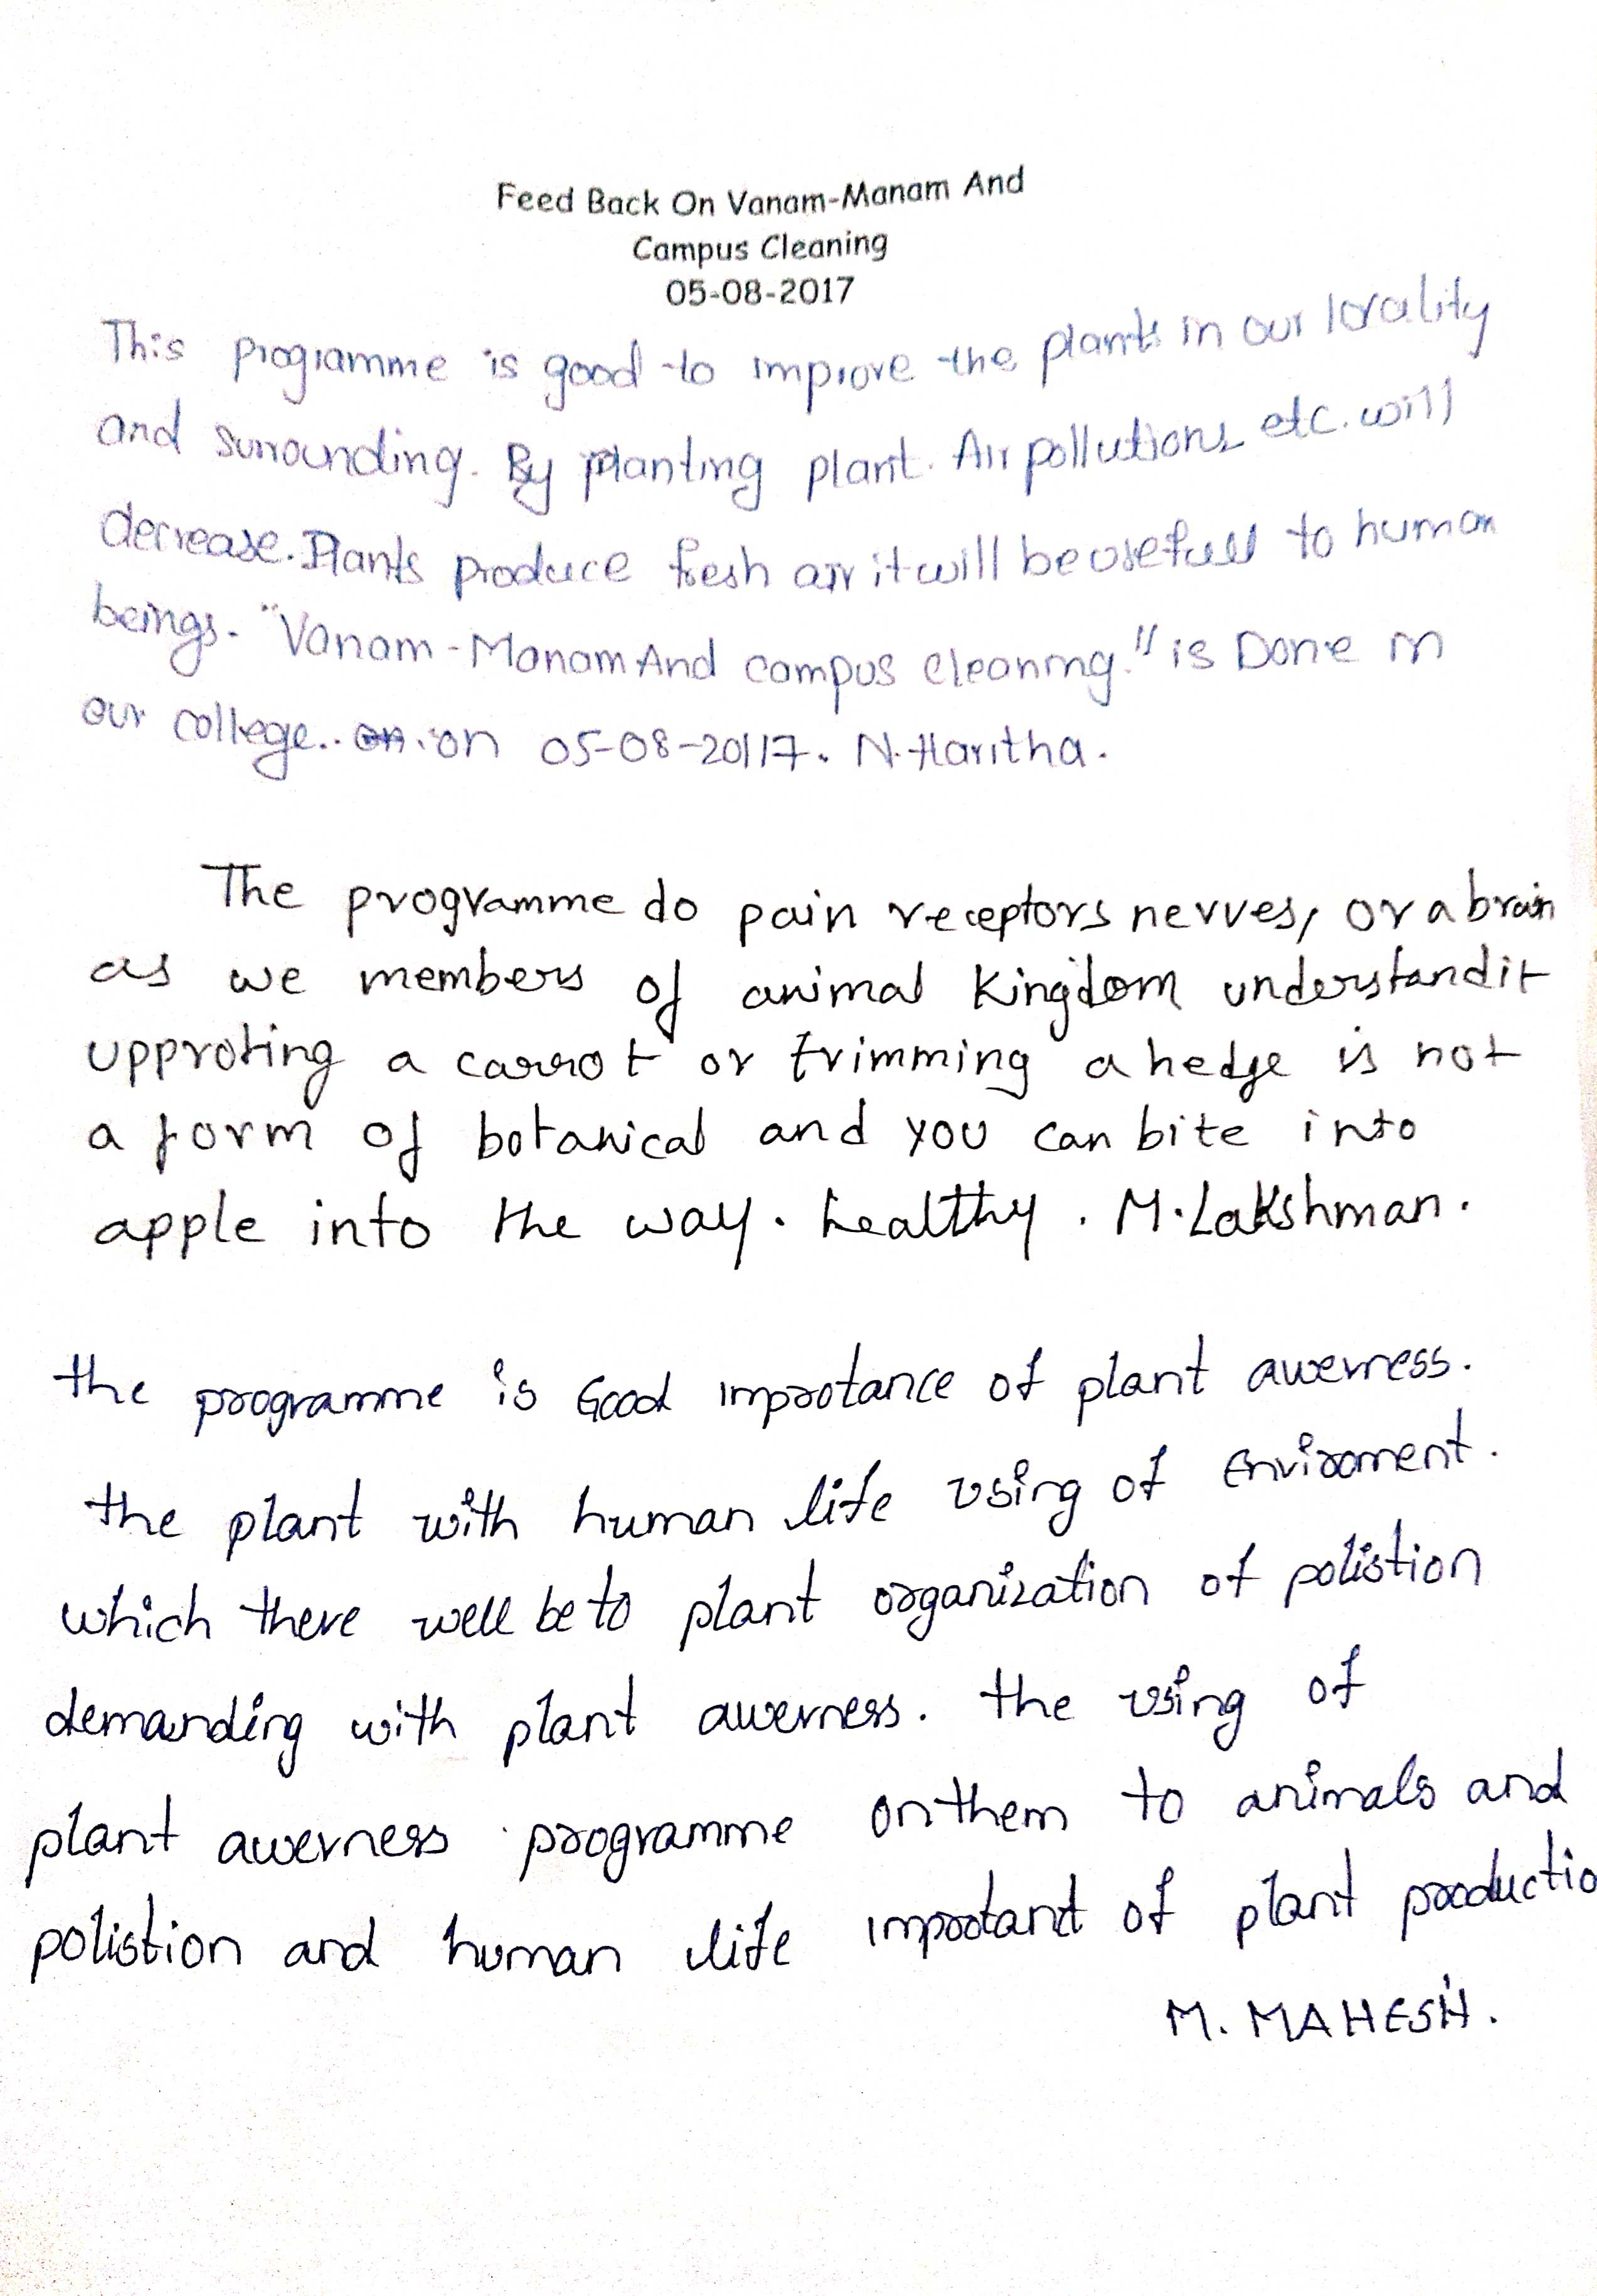 Feed Back On Vanam-Manam And
Campus Cleaning
05-08-2017
This programme is good to improve the plants in our locality
and surrounding. By planting plant. Air pollutions etc. will
decrease. Plants produce fresh air it will be usefull to human
beings. "Vanam-Manam And campus cleaning." is Done in
our college.. on on 05-08-20117. N. Haritha.
The programme do pain receptors nerves, or a brain
as we members of animal Kingdom understand it
upproting a carrot or trimming a hedge is not
a form of botanical and you can bite into
apple into the way. healthy. M. Lakshman.
the programme is Good improtance of plant awerness.
the plant with human life using of Enviroment.
which there well be to plant organization of polistion
demanding with plant awerness. the using of
plant awerness programme on them to animals and
polistion and human life improtant of plant productio
M. MAHESH.